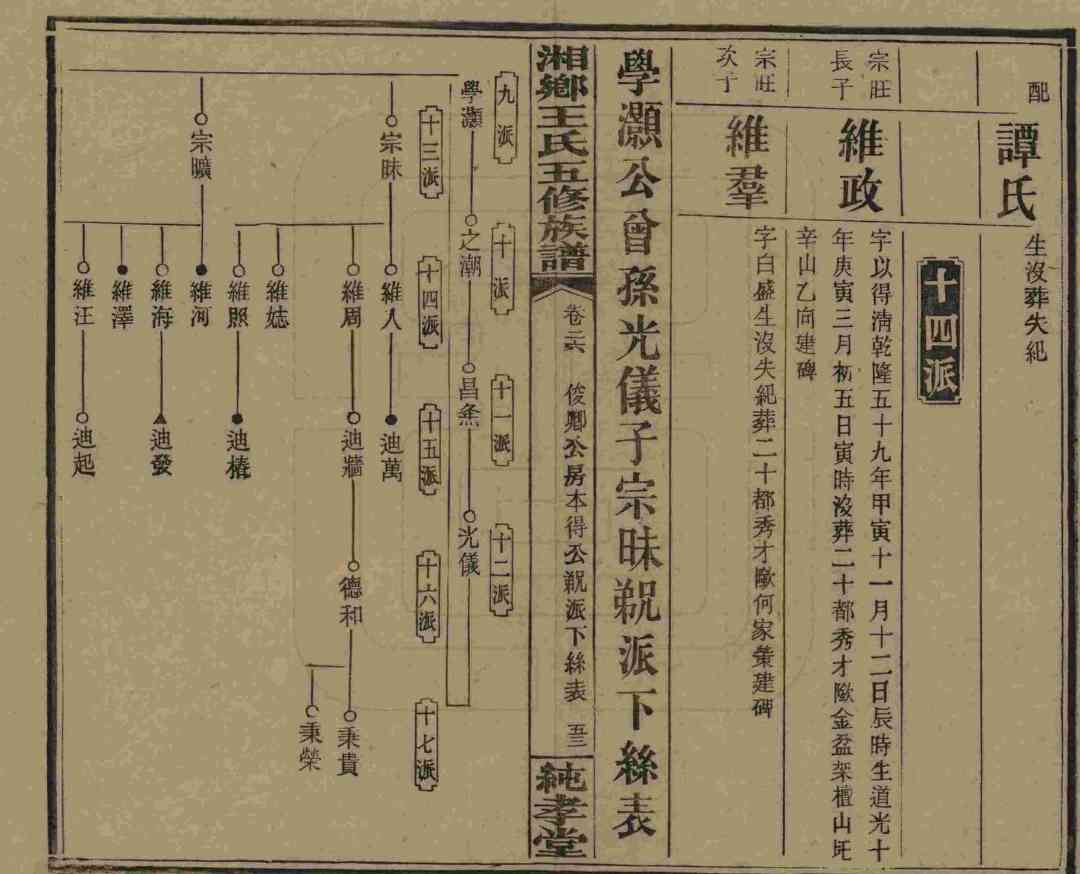 配
譚氏
生沒葬失紀
十四派
宗旺
長子
維政
字以得清乾隆五十九年甲寅十一月十二日辰時生道光十
年庚寅三月初五日寅時沒葬二十都秀才歐金盆架檀山坉
辛山乙向建碑
宗旺
次子
維羣
字白盛生沒失紀葬二十都秀才歐何家塋建碑
學灝公曾孫光儀子宗昧
派下絲表
湘鄉王氏五修族譜
卷二六
俊卿公房本得公
派下絲表
五三
純孝堂
九派
十派
十一派
十二派
學灝
之潮
昌
光儀
十三派
十四派
十五派
十六派
十七派
宗昧
維人
迪萬
維周
迪牆
德和
秉貴
秉榮
維誌
維照
迪椿
宗曠
維河
維海
迪發
維澤
維汪
迪起